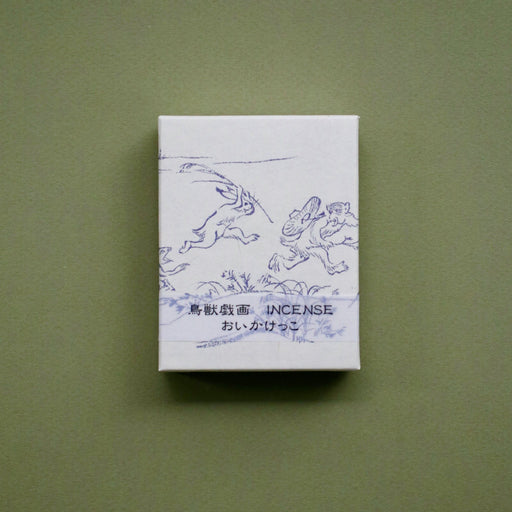 鳥獣戯画 INCENSE
おいかけっこ